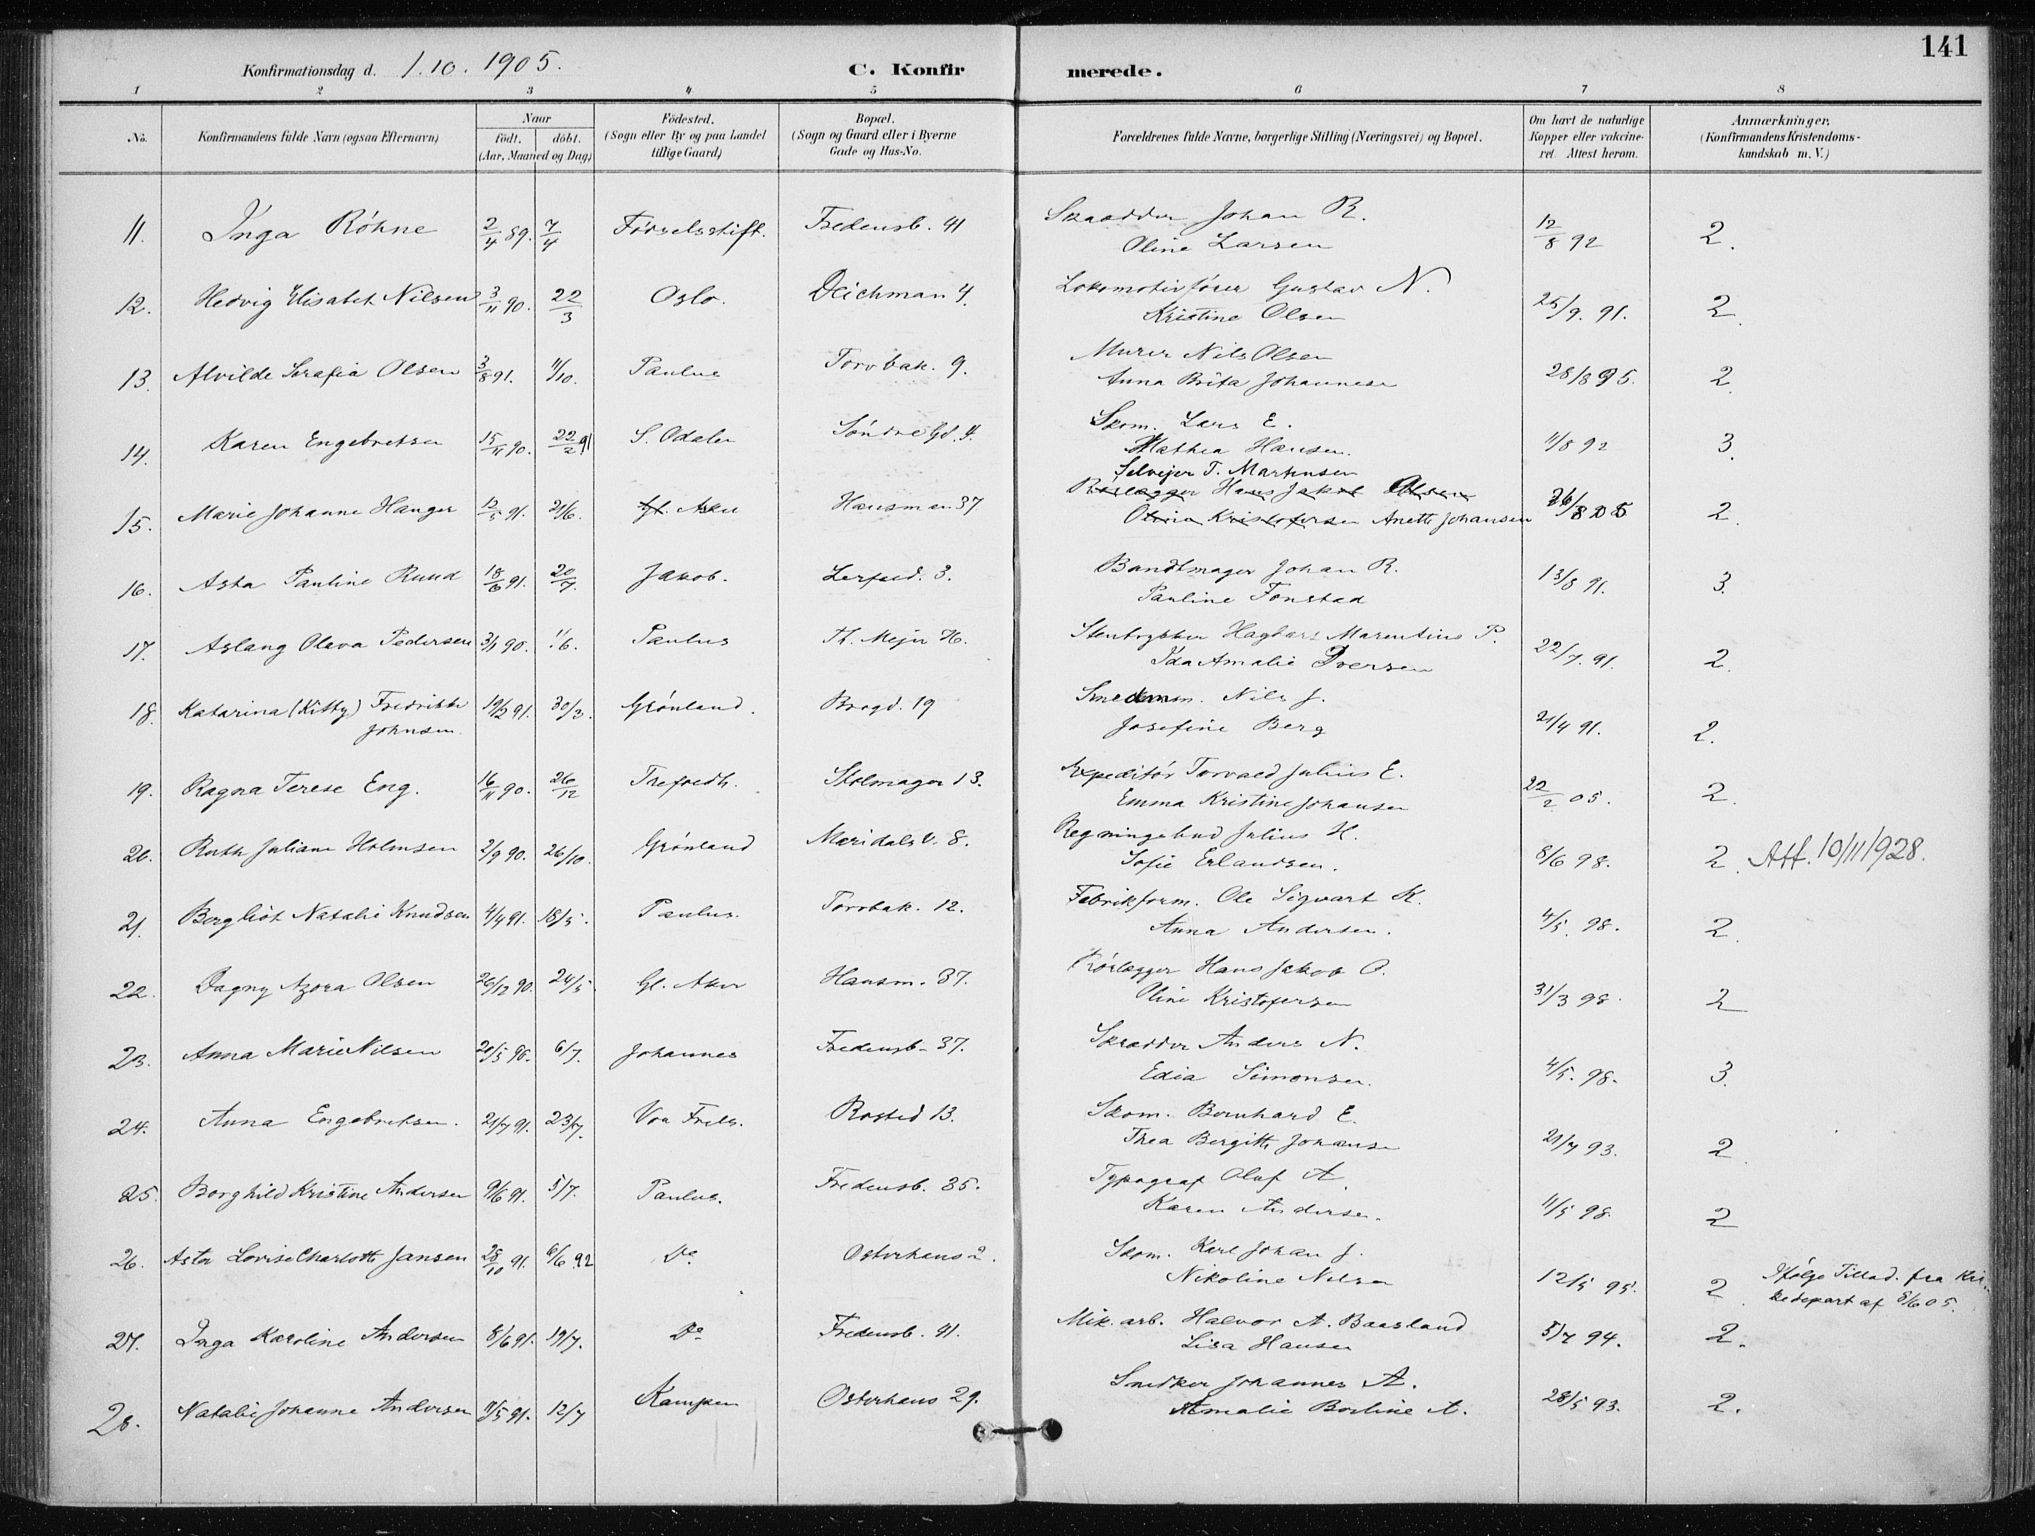 141
Konfirmationsdag d. 1.10.1905. C. Konfirmerede.
1 2 3 4 5 6 7 8
No. Konfirmandens fulde Navn (ogsaa Efternavn) Naar födt. döbt. (Aar, Maaned og Dag) Födested. (Sogn eller By og paa Landet tillige Gaard) Bopæl. (Sogn og Gaard eller i Byerne Gade og Hus-No. Forældrenes fulde Navne, borgerlige Stilling (Næringsvei) og Bopæl. Om havt de naturlige Kopper eller vakcineret. Attest herom. Anmærkninger. (Konfirmandens Kristendomskundskab m. V.)
11. Inga Röhne 2/4 89. 7/4 Fødselsstift. Fredensb. 41 Skrædder Johan R. 12/8 92 2.
Oline Larsen
12. Hedvig Elisabet Nilsen 3/11 90. 22/3 Oslo. Deichman 4. Lokomotivfører Gustav N. 25/9. 91. 2.
Kristine Olsen
13. Alvilde Serafia Olsen 3/8 91. 11/10. Paulus Torvbak. 9. Murer Nils Olsen 28/8 95. 2.
Anna Brita Johannesen
14. Karen Engebretsen 15/11 90. 22/2 91 S. Odalen Søndre Gd. 4. Skom. Lars E. 11/8 92 3.
Mathea Hansen.
Selvejer T. Martinsen
15. Marie Johanne Hanger 12/5 91. 21/6. Gl. Aker Hausman 37 Rørlægger Hans Jakob Olsen 2.
Kristofersen Anette Johansen
16. Asta Pauline Ruud 18/6 91. 20/7. Jakob. Lerfald. 3. Bandtmager Johan R. 13/8 91. 3.
Pauline Fonstad
17. Aslaug Olava Pedersen 3/1 90. 1/6. Paulus Th. Mejer H. Stenhugger Hagbart Marentius P. 22/7. 91. 2.
Ida Amalie Iversen
18. Katarina (Kitty) Fredrikke Johnsen 19/2 91. 30/3. Grønland. Brogd. 19 Smedem. Nils J. 21/4 91. 2.
Josefine Berg
19. Ragna Terese Eng. 16/11 90. 26/12 Trefoldh. Stolmager 13. Expeditør Torvald Julius E. 22/2 05. 2.
Emma Kristine Johansen
20. Ruth Juliane Holmsen 2/9 90. 26/10. Grønland Maridals v. 8. Regningsbud Julius H. 8/6 98. 2. Att. 10/11 1928.
Sofie Erlandsen.
21. Bergliot Natalie Knudsen 4/4 91. 18/5. Paulus. Torvbak. 12. Fabrikform. Ole Sigvart K. 4/5. 98. 2.
Anna Andersen.
22. Dagny Azora Olsen 26/12 90. 24/5. Gl. Aker Hausm. 37. Rörlægger Hans Jakob O. 31/3 98. 2
Oline Kristofersen
23. Anna Marie Nilsen 20/5 90. 6/7. Johannes Fredensb. 37. Skrædder Anders N. 4/5. 98. 3.
Edia Simonsen.
24. Anna Engebretsen. 21/7 91. 23/7. Vor Frels. Rosted 13. Skom. Bernhard E. 21/7 93. 2.
Thea Bergitte Johansen
25. Borghild Kristine Andersen 9/6 91. 5/7. Paulus. Fredensb. 35. Typograf Oluf A. 11/5 98. 2
Karen Andersen.
26. Astor Lovise Charlotte Jansen 28/10 91. 6/6 92 Do Osterhaus 2. Skom. Karl Johan J. 12/5 95. 2. Ifølge Tillad. fra Kirkedepart af 8/6 05.
Nikoline Nilsen
27. Inga Karoline Andersen 8/6 91. 19/7. Do Fredensb. 41. Mik. arb. Halvor A. Baasland 5/7 94. 2.
Lisa Hansen
28. Natalie Johanne Andersen 11/5 91. 12/7 Kampen Osterhaus 29. Snedker Johannes A. 28/5 93. 2.
Amalie Berline A.